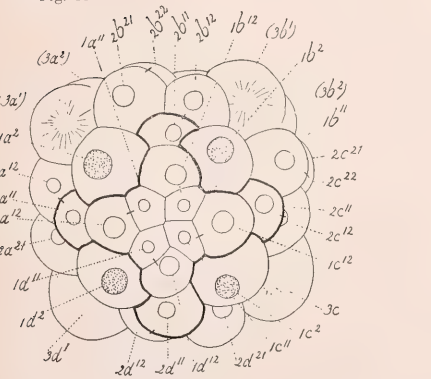 (3a²)
1a''
2b²¹
2b²²
2b¹¹
2b¹²
1b¹²
(3b')
1b²
(3b²)
1b''
2c²¹
2c²²
2c¹¹
2c¹²
1c¹²
3c
1c²
1c¹¹
2d²¹
1d¹²
2d¹¹
2d¹²
3d'
1d²
1d¹¹
2a²¹
a¹²
a''
a¹²
1a²
(3a')